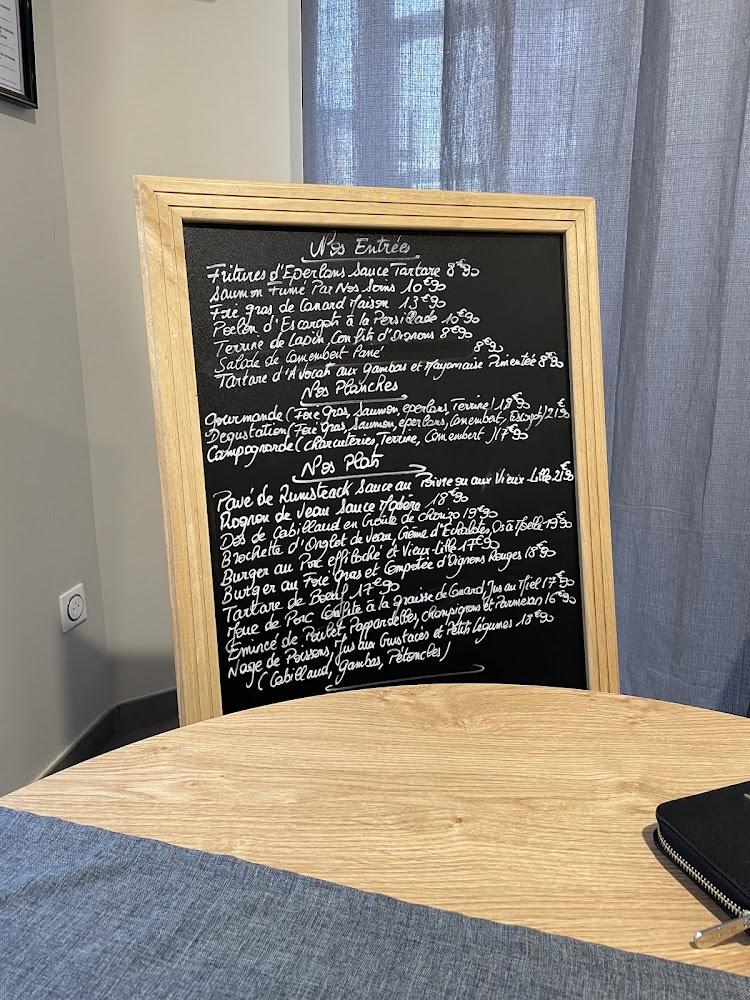 Nos Entrée
Fritures d'Eperlans Sauce Tartare 8€90
Saumon Fumé Par Nos Soins 10€90
Foie gras de Canard Maison 13€90
Poelon d'Escargots à la Persillade 10€90
Terrine de Lapin Confits d'Oignons 8€90
Salade de Camembert Pané 8€90
Tartare d'Avocat aux gambas et Mayonnaise Pimentée 8€90
Nos Planches
Gourmande (Foie Gras, Saumon, eperlans, Terrine) 18€90
Degustation (Foie gras, Saumon, eperlans, Camembert, Escargots) 21€90
Campagnarde (Charcuteries, Terrine, Camembert) 17€90
Nos Plats
Pavé de Rumsteack Sauce au Poivre ou aux Vieux-Lille 21€90
Rognon de Veau Sauce Madère 18€90
Dos de Cabillaud en Croûte de Chorizo 19€90
Brochette d'Onglet de Veau, Crème d'Echalotes, Os à Moelle 19€90
Burger au Porc effiloché et Vieux-Lille 17€90
Burger au Foie Gras et Compotée d'Oignons Rouges 18€90
Tartare de Boeuf 17€90
Joue de Porc Confite à la graisse de Canard, Jus au Miel 17€90
Émincé de Poulet Pappardelles, champignons et Parmesan 16€90
Nage de Poissons, Jus aux Crustacés et Petits légumes 18€90
(Cabillaud, Gambas, Pétoncles)